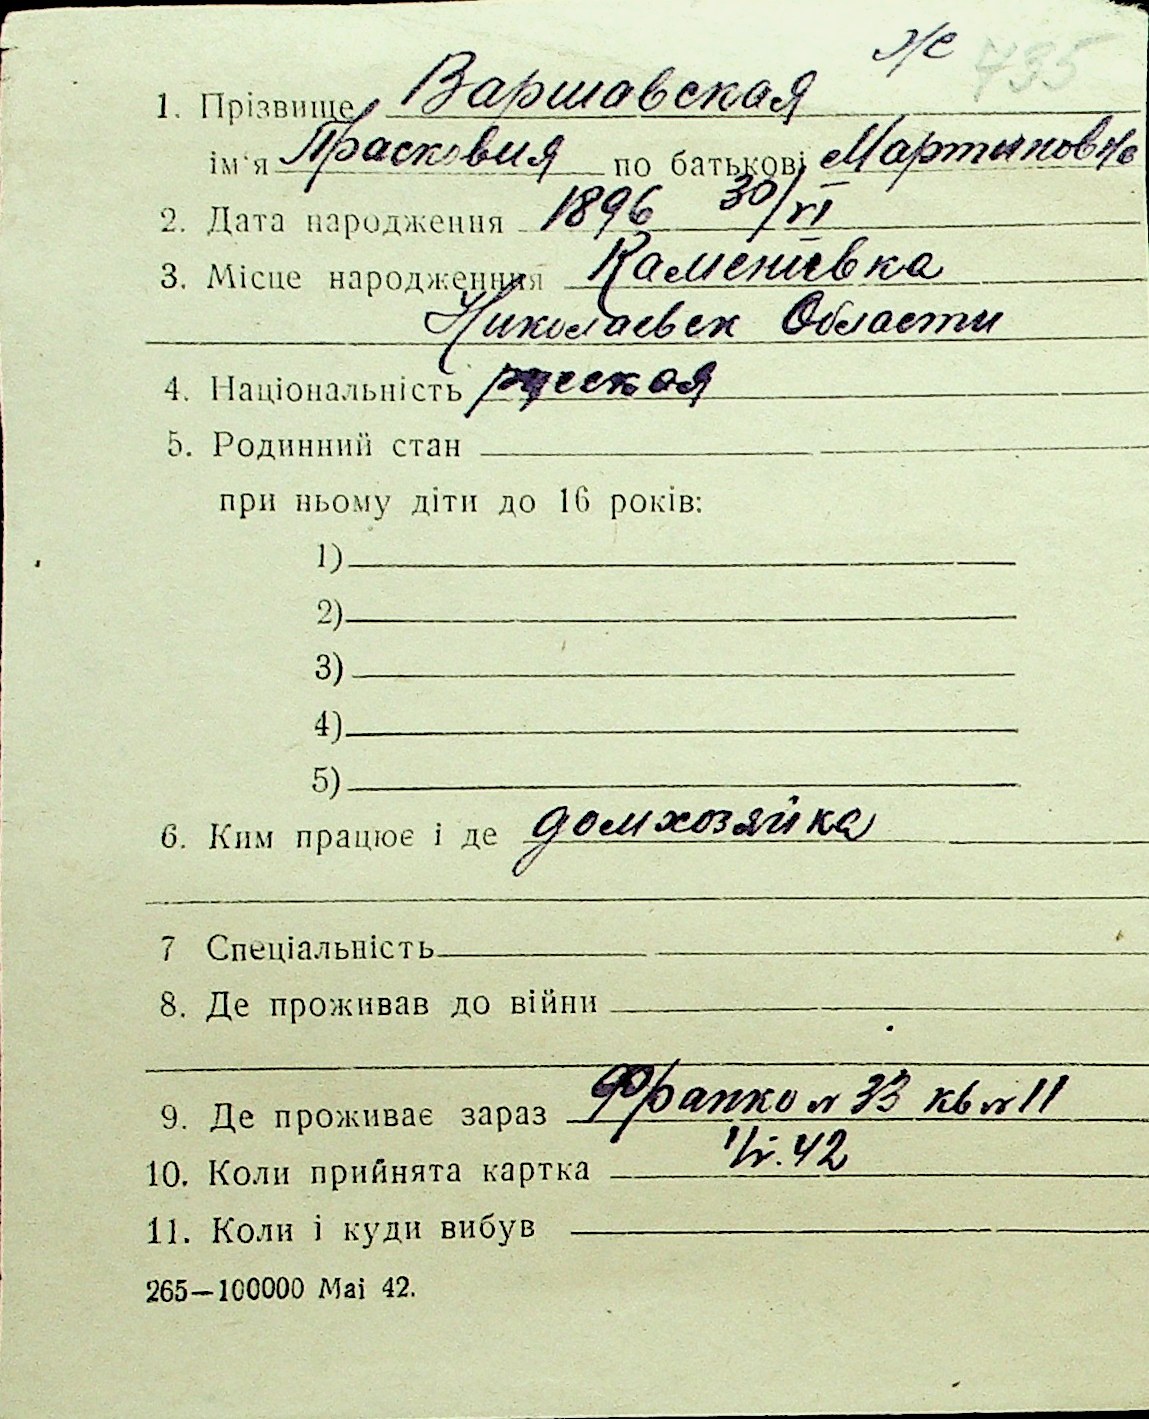 ж 735
1. Прізвище Варшавская
ім'я Прасковия по батькові Мартыновна
2. Дата народження 1896 30/VI
3. Місце народженння Каменевка
Николаевск Области
4. Національність русская
5. Родинний стан
при ньому діти до 16 років:
1)
2)
3)
4)
5)
6. Ким працює і де домхозяйка
7 Спеціальність
8. Де проживав до війни
9. Де проживає зараз Франко № 33 кв № 11
10. Коли прийнята картка 42
11. Коли і куди вибув
265—100000 Mai 42.